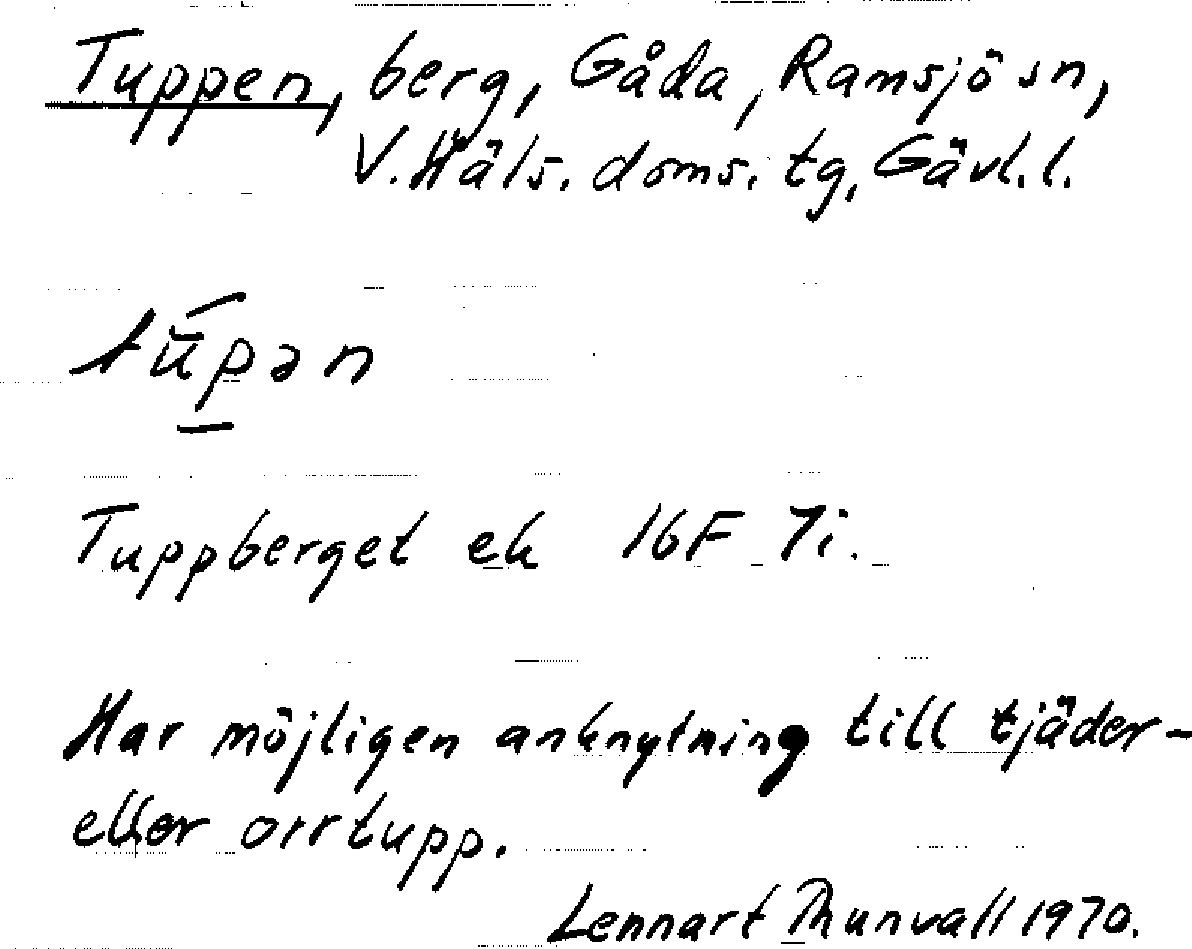 Tuppen, berg, Gåda, Ramsjö sn,
V. Häls. doms. tg, Gävl. l.
tùpən
Tuppberget ek 16F 7i.
Har möjligen anknytning till tjäder-
eller orrtupp.
Lennart Thunvall 1970.